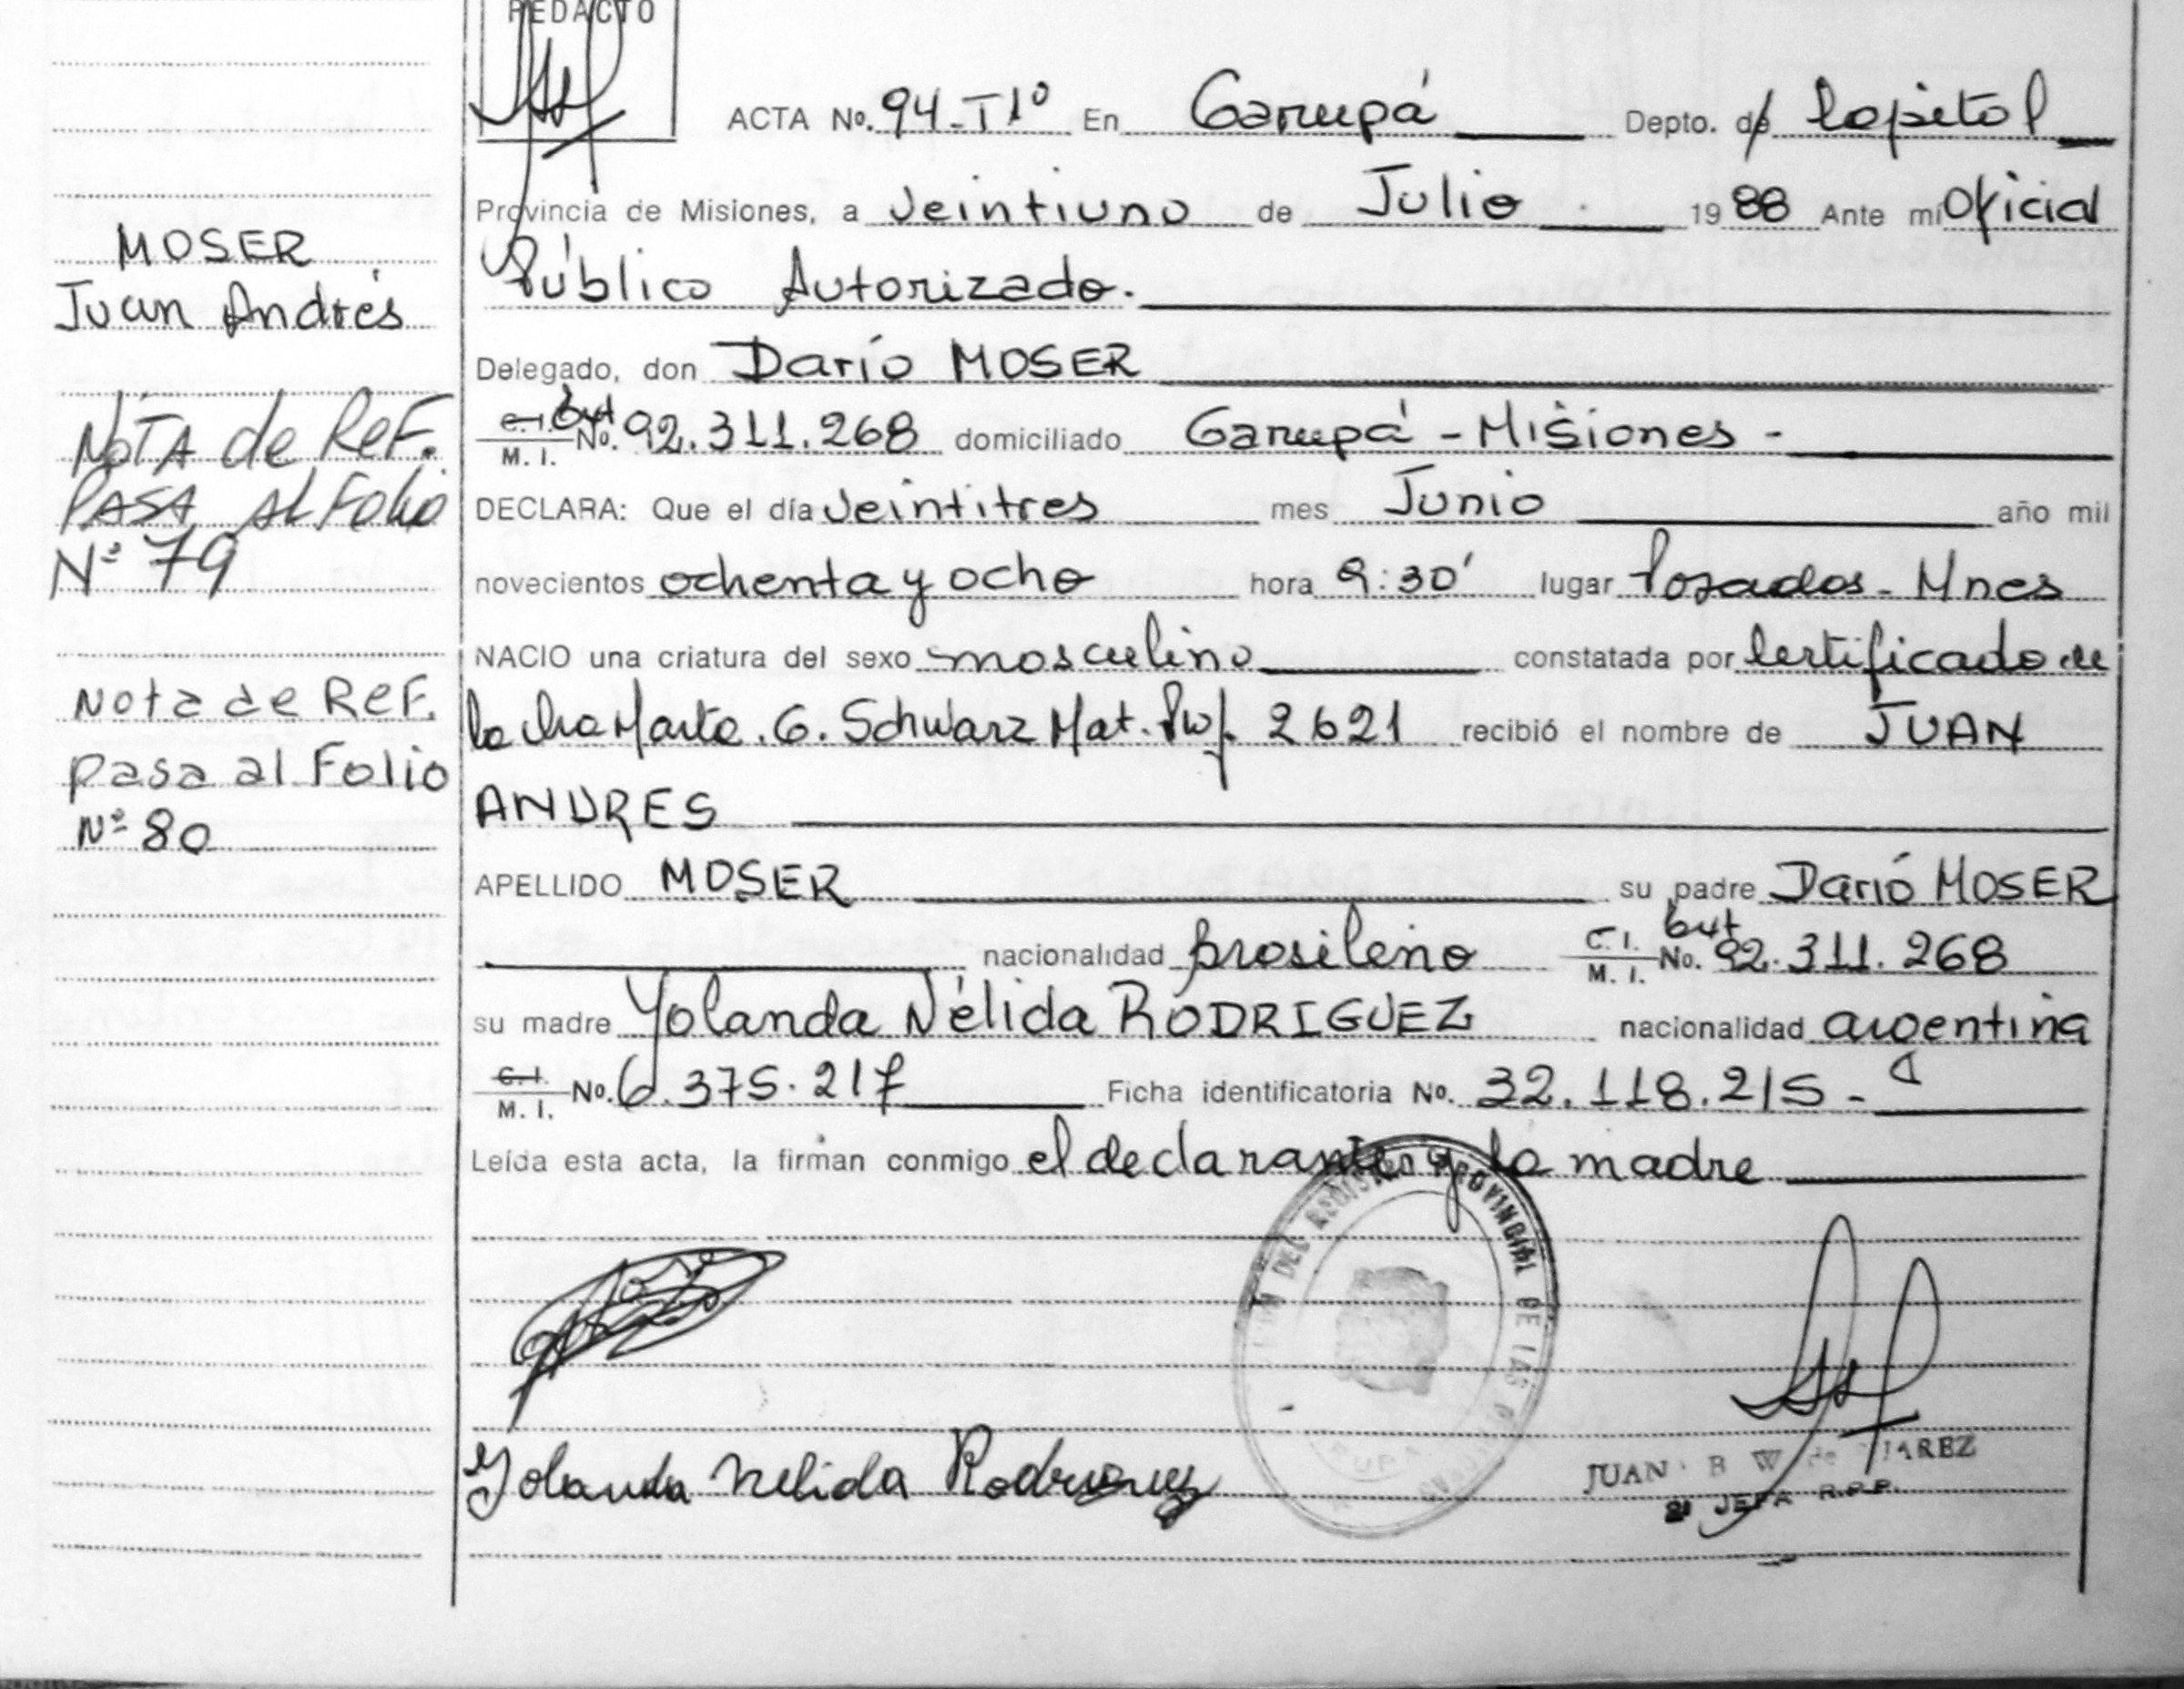 REDACTO
ACTA No. 94-T1º En Garupá Depto. de Capital
Provincia de Misiones, a veintiuno de Julio 1988 Ante mí Oficial
Público Autorizado.
MOSER
Juan Andrés
Delegado, don Darío MOSER
C.I. M. I. No. 92.311.268 domiciliado Garupá - Misiones -
NOTA de ReF.
PASA Al Folio
Nº 79
DECLARA: Que el día veintitres mes Junio año mil
novecientos ochenta y ocho hora 9:30' lugar Posadas - Mnes
NACIO una criatura del sexo masculino constatada por Certificado de
Nota de ReF.
Pasa al Folio
Nº 80
la Marta. G. Schwarz Mat. Prof. 2621 recibió el nombre de JUAN
ANDRES
APELLIDO MOSER su padre Darío MOSER
nacionalidad brasileño C.I. M. I. No. 92.311.268
su madre Yolanda Nélida RODRIGUEZ nacionalidad argentina
C.I. M. I. No. 6.375.217 Ficha identificatoria No. 32.118.215 -
Leída esta acta, la firman conmigo el declarante y la madre
DEL REGISTRO PROVINCIAL DE LAS
Yolanda Nelida Rodriguez
JUAN B W de JUAREZ
JEFA R.P.P.